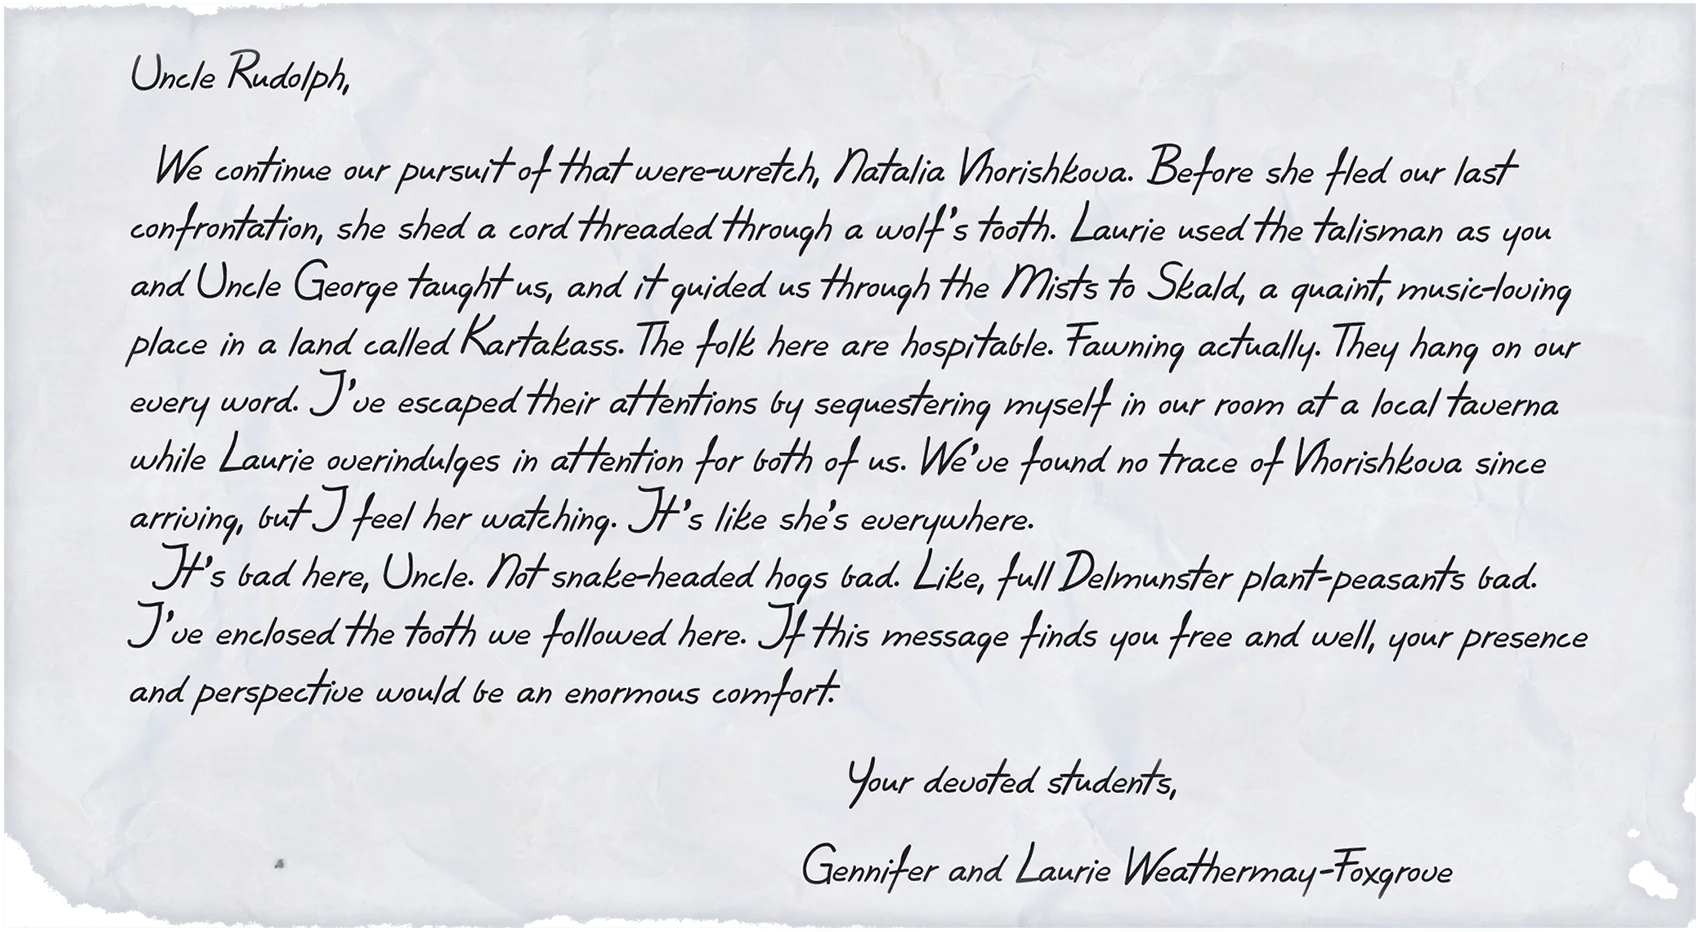 Uncle Rudolph,
We continue our pursuit of that were-wretch, Natalia Vhorishkova. Before she fled our last
confrontation, she shed a cord threaded through a wolf's tooth. Laurie used the talisman as you
and Uncle George taught us, and it guided us through the Mists to Skald, a quaint, music-loving
place in a land called Kartakass. The folk here are hospitable. Fawning actually. They hang on our
every word. I've escaped their attentions by sequestering myself in our room at a local taverna
while Laurie overindulges in attention for both of us. We've found no trace of Vhorishkova since
arriving, but I feel her watching. It's like she's everywhere.
It's bad here, Uncle. Not snake-headed hogs bad. Like, full Delmunster plant-peasants bad.
I've enclosed the tooth we followed here. If this message finds you free and well, your presence
and perspective would be an enormous comfort.
Your devoted students,
Gennifer and Laurie Weathermay-Foxgrove